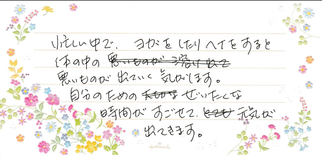 忙しい中で、ヨガをしたりヘイをすると
体の中の悪いものが溶け出て
悪いものが出ていく気がします。
自分のためのぜいたくな
時間がすごせて、とても元気が
出てきます。